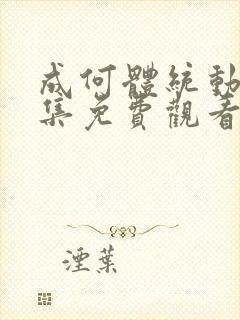 成何體統動
集免費觀看
湮葉